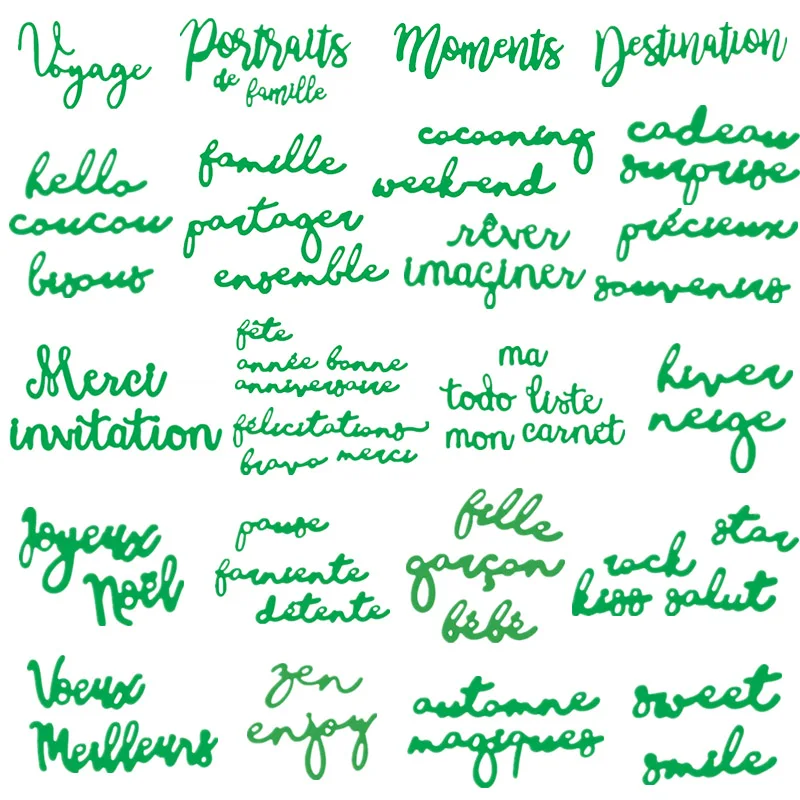 Voyage
Portraits
de famille
Moments
Destination
hello
coucou
bisous
famille
partager
ensemble
cocooning
week-end
rêver
imaginer
cadeau
surprise
précieux
souvenirs
Merci
invitation
fête
année bonne
anniversaire
félicitations
bravo merci
ma
todo liste
mon carnet
hiver
neige
Joyeux
Noël
pause
farniente
détente
fille
garçon
bébé
star
rock
kiss salut
Voeux
Meilleurs
zen
enjoy
automne
magiques
sweet
smile